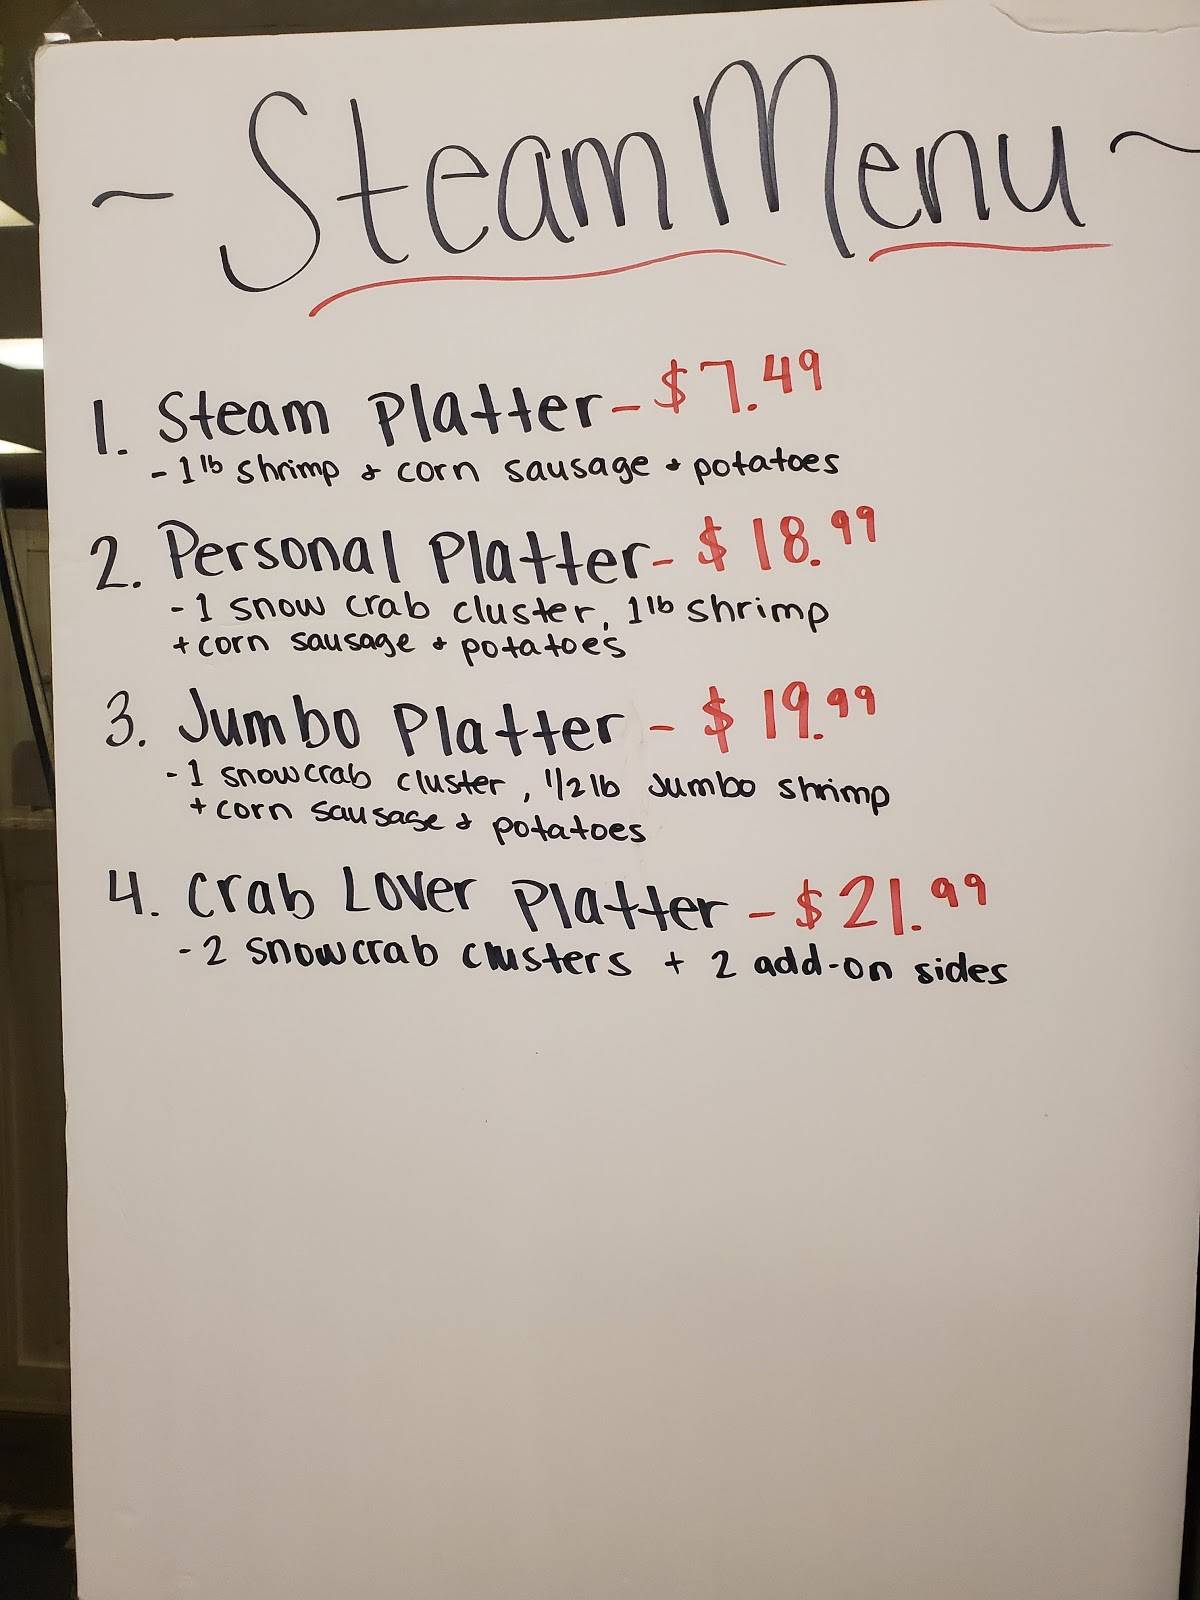 ~ Steam Menu ~
1. Steam Platter - $7.49
- 1 lb shrimp & corn sausage & potatoes
2. Personal Platter - $18.99
- 1 snow crab cluster, 1 lb shrimp
+ corn sausage & potatoes
3. Jumbo Platter - $19.99
- 1 snowcrab cluster, 1/2 lb Jumbo shrimp
+ corn sausage & potatoes
4. Crab Lover Platter - $21.99
- 2 snowcrab clusters + 2 add-on sides